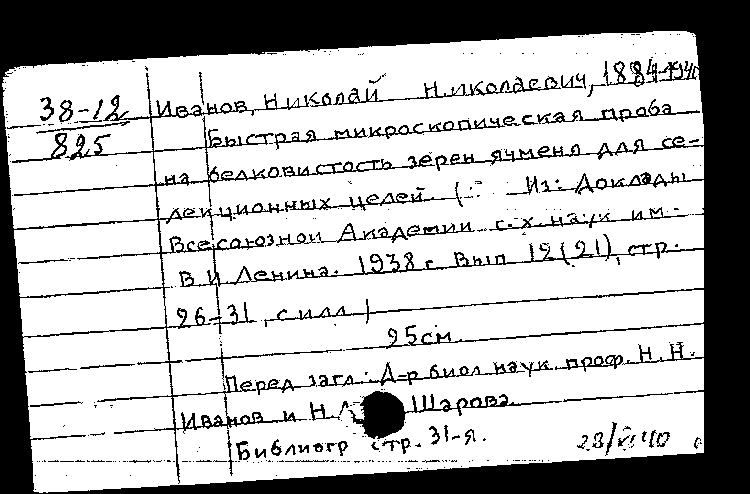 38-12
825
Иванов, Николай Николаевич, 1884-1940
Быстрая микроскопическая проба
на белковистость зерен ячменя для се-
лекционных целей. (: Из: Доклады
Всесоюзной Академии с.-х. наук им.
В.И Ленина. 1938 г. Вып 12(21), стр.
26-31, с илл.)
25см.
Перед загл.: Д-р биол наук. проф. Н.Н.
Иванов и Н. Шарова.
Библиогр стр. 31-я.
28/XI 40